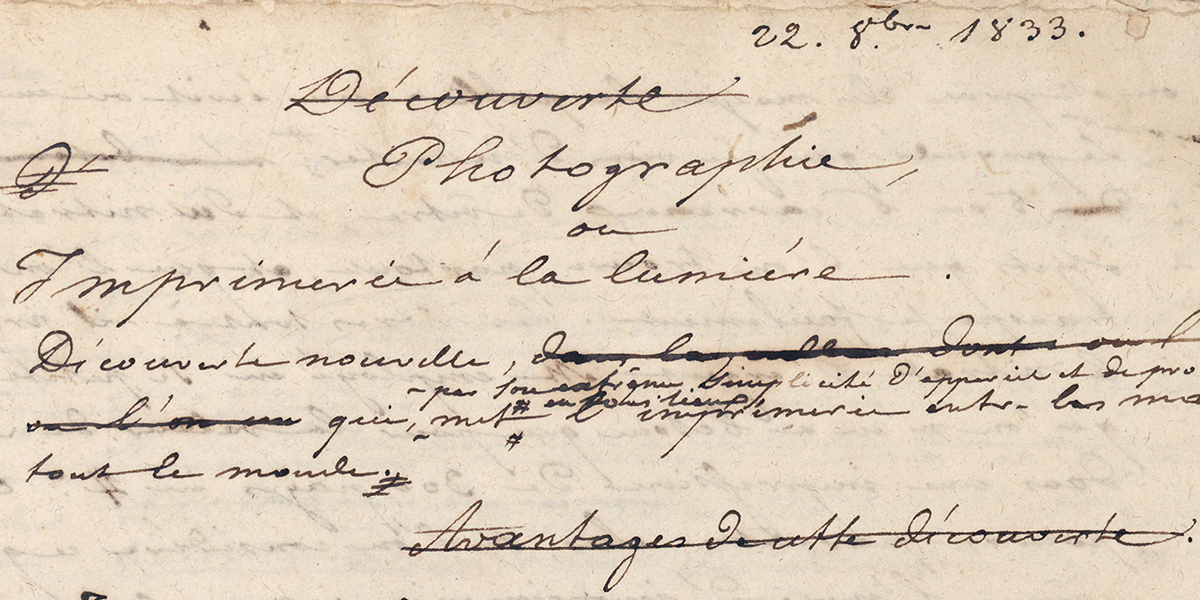 22. 8bre 1833.
Découverte
Photographie,
ou
Imprimerie á la lumiére.
Découverte nouvelle, dans la quelle dont ou l
- par son extrême simplicité d'appareil et de pro
en tous lieux
ou l'on qui, met # l'imprimerie entre les ma
tout le monde.
Avantages de cette découverte.